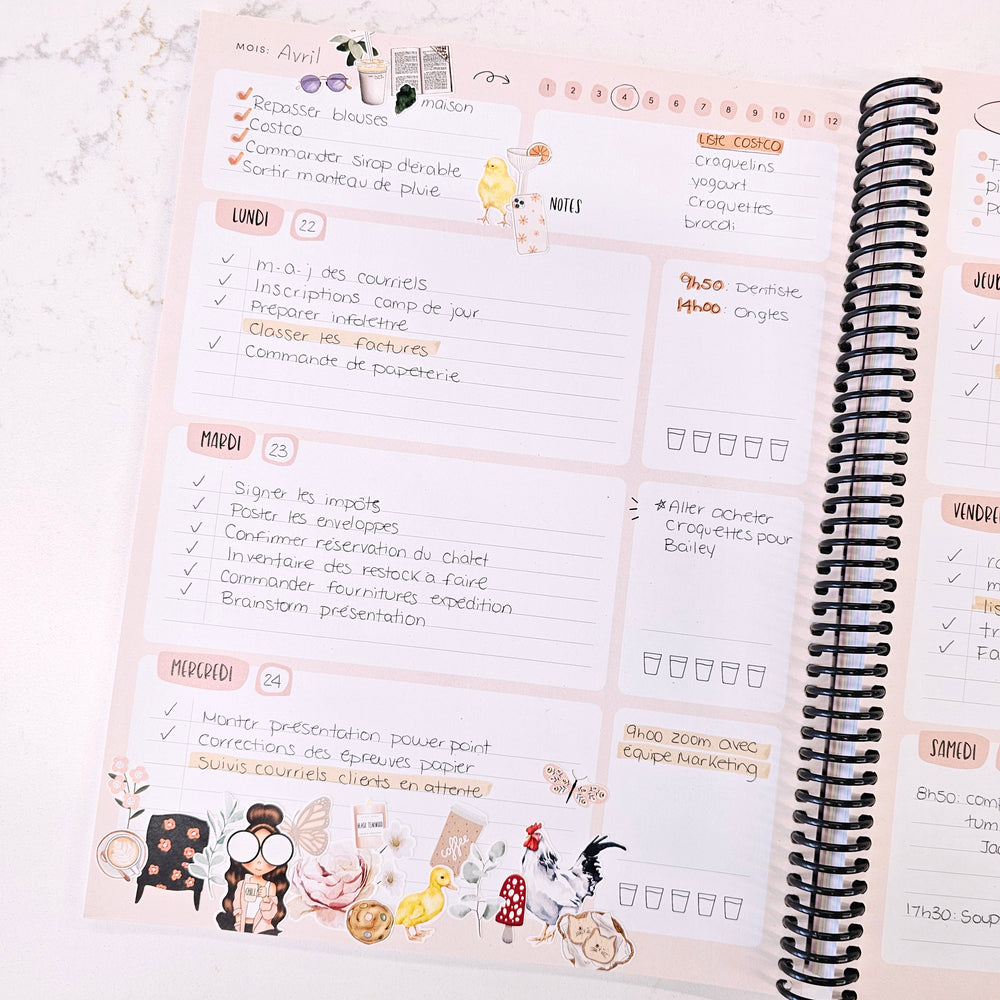 MOIS: Avril
1 2 3 4 5 6 7 8 9 10 11 12
maison
Repasser blouses
Costco
Commander sirop d'érable
Sortir manteau de pluie
NOTES
Liste costco
craquelins
yogourt
Croquettes
brocoli
LUNDI 22
m-a-j des courriels
Inscriptions camp de jour
Préparer infolettre
Classer les factures
Commande de papeterie
9h50: Dentiste
14h00: Ongles
MARDI 23
Signer les impôts
Poster les enveloppes
Confirmer réservation du chalet
Inventaire des restock à faire
Commander fournitures expédition
Brainstorm présentation
*Aller acheter
Croquettes pour
Bailey
MERCREDI 24
Monter présentation power point
Corrections des épreuves papier
Suivis courriels clients en attente
9h00 zoom avec
équipe Marketing
CHILL
coffee
JEUD
VENDRE
SAMEDI
8h50: com
tum
Ja
17h30: Soup